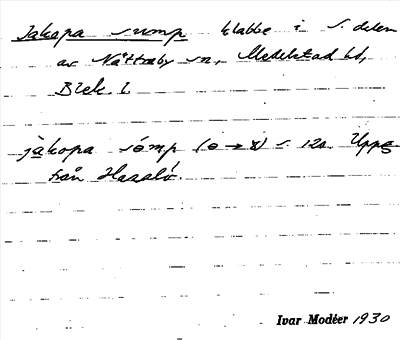 Jakopa sump klabbe i S. delen
av Nättraby sn, Medelstad hd,
Blek. l.
jàkopa sómp s. 120. Uppg.
från Hasslö.
Ivar Modéer 1930